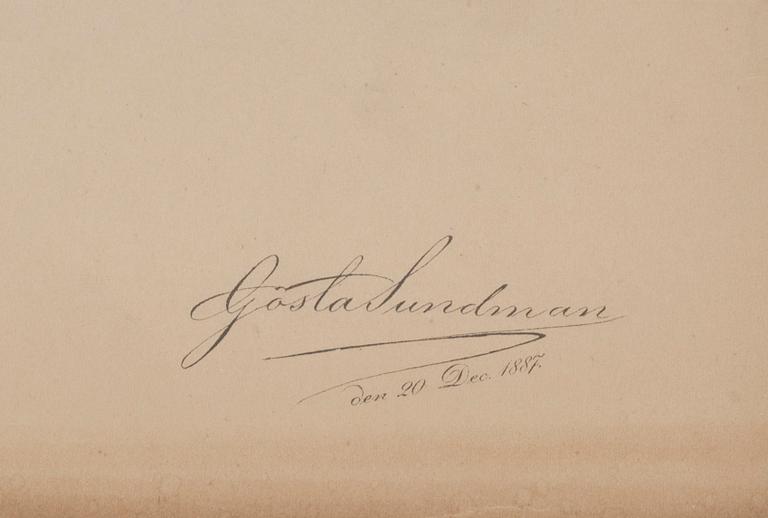 Gösta Sundman
den 20 Dec. 1887.